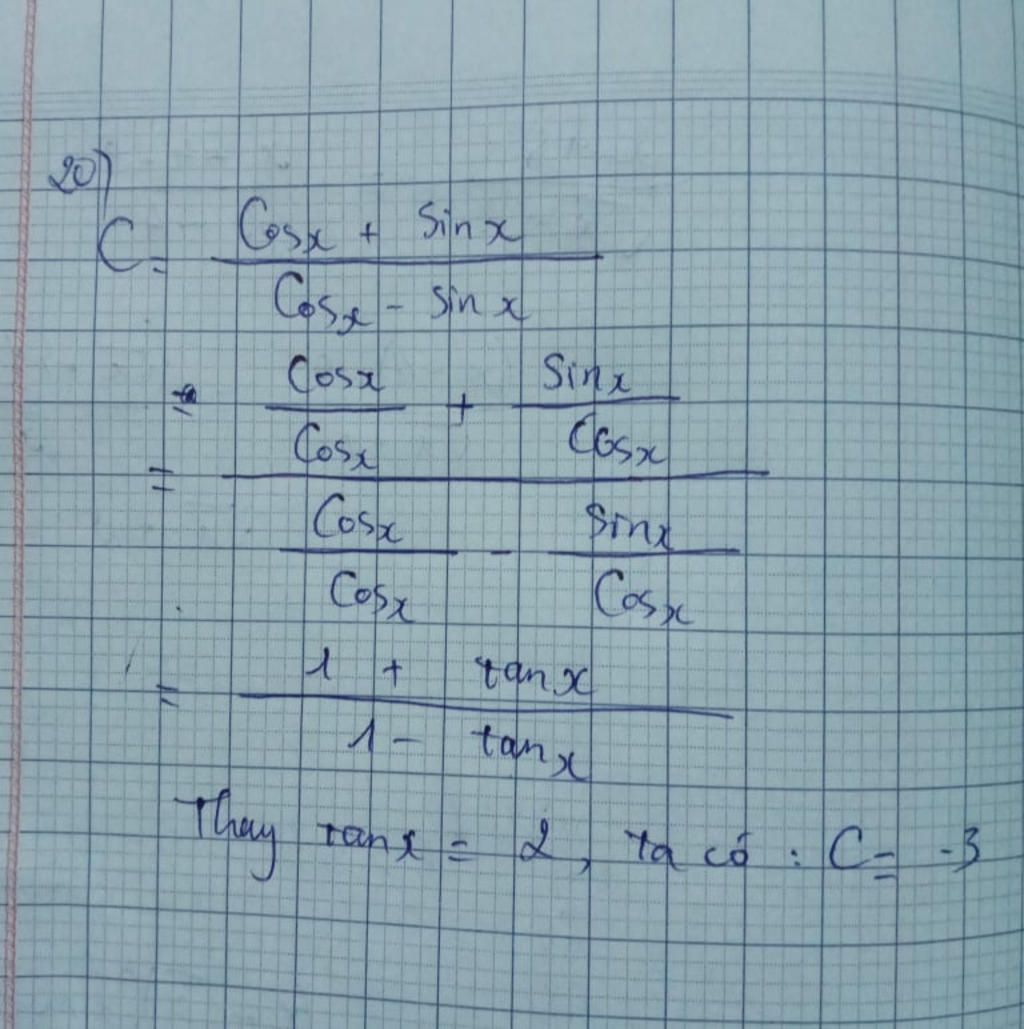 20)
C = (Cosx + Sinx) / (Cosx - Sinx)
= (Cosx/Cosx + Sinx/Cosx) / (Cosx/Cosx - Sinx/Cosx)
= (1 + tanx) / (1 - tanx)
Thay tanx = 2, ta có : C = -3